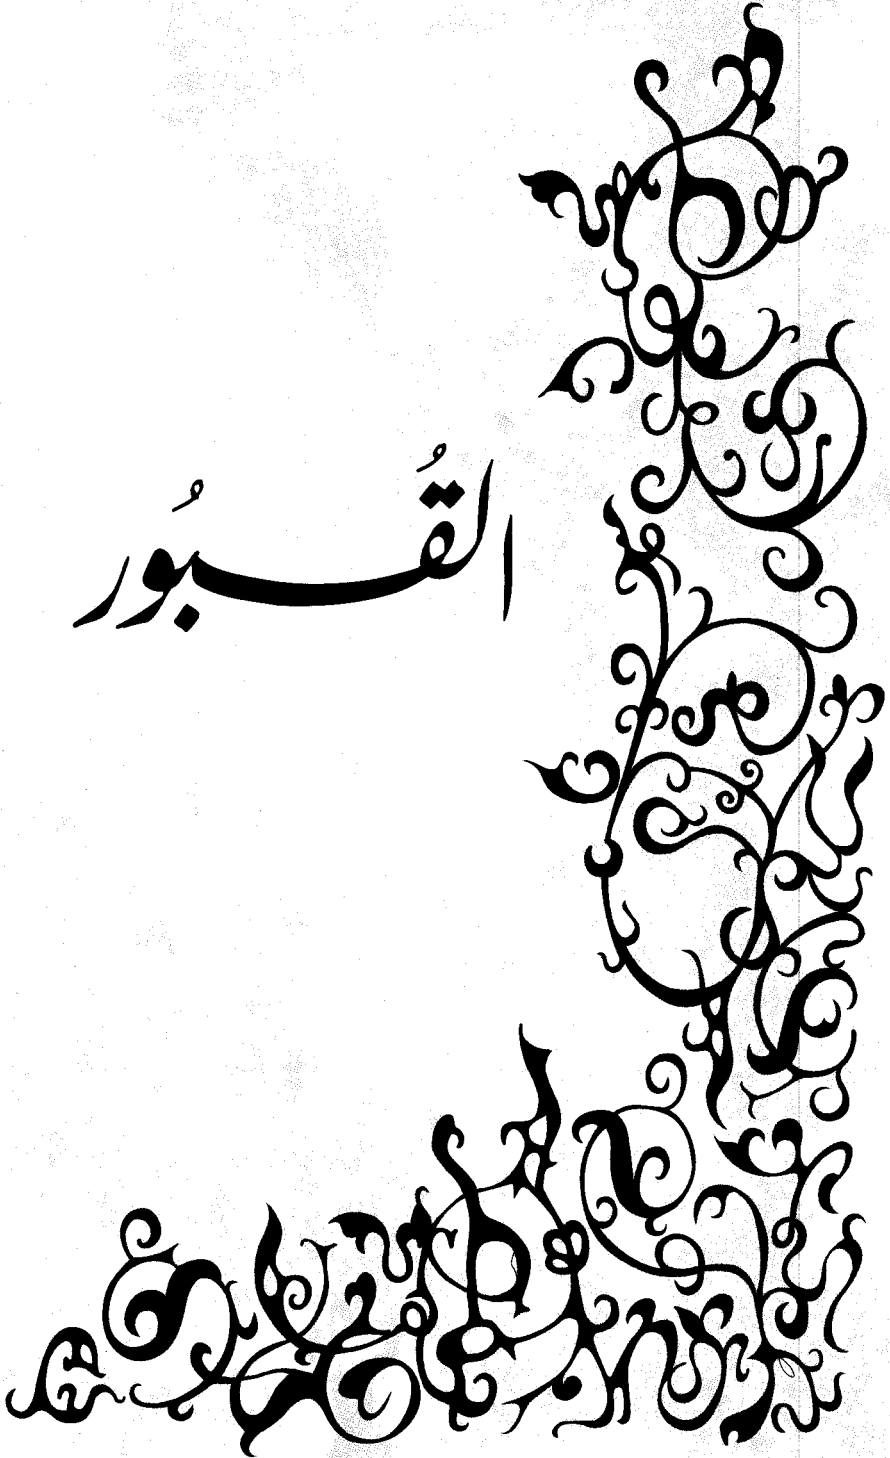 القُبُور